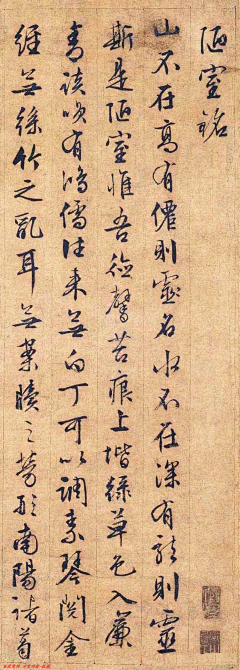 陋室銘
山不在高有僊則靈名水不在深有龍則靈
斯是陋室惟吾德馨苔痕上堦綠草色入簾
青談咲有鴻儒往來無白丁可以調素琴閱金
經無絲竹之亂耳無案牘之勞形南陽諸葛